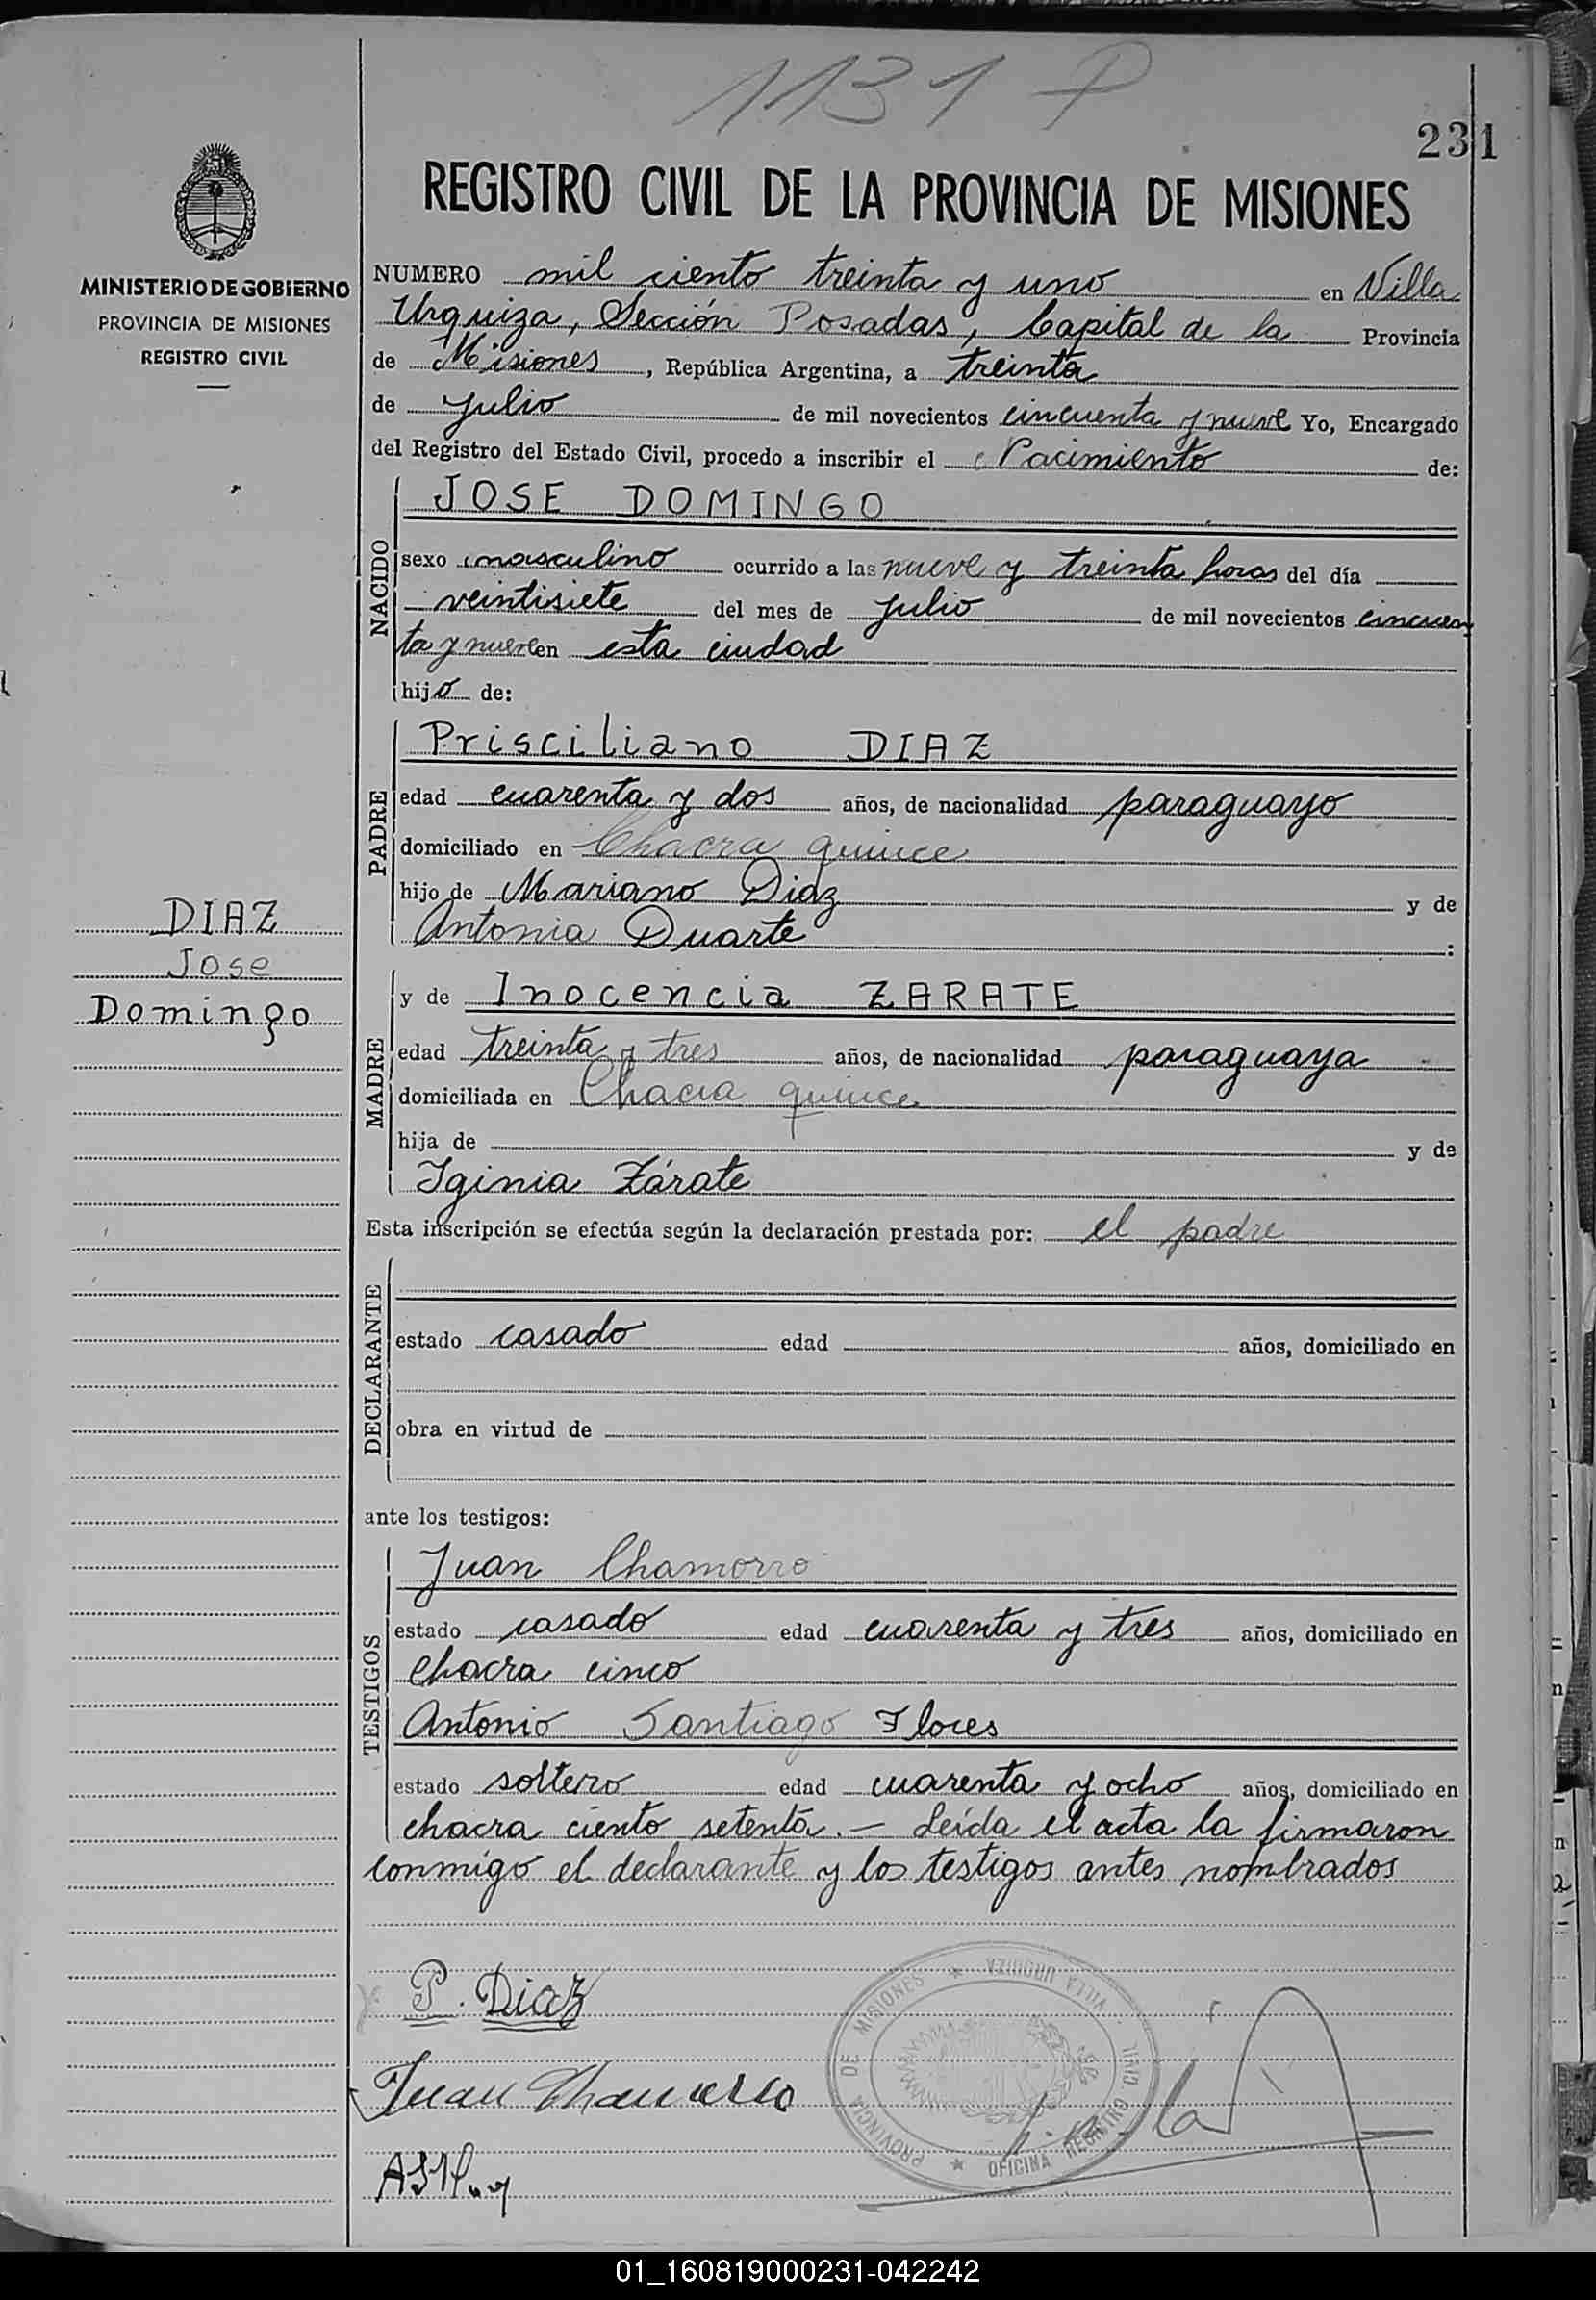 1131 P
231
REGISTRO CIVIL DE LA PROVINCIA DE MISIONES
MINISTERIO DE GOBIERNO
PROVINCIA DE MISIONES
REGISTRO CIVIL
NUMERO mil ciento treinta y uno en Villa
Urquiza, Sección Posadas, Capital de la Provincia
de Misiones, República Argentina, a treinta
de Julio de mil novecientos cincuenta y nueve Yo, Encargado
del Registro del Estado Civil, procedo a inscribir el Nacimiento de:
NACIDO
JOSE DOMINGO
sexo masculino ocurrido a las nueve y treinta horas del día
veintisiete del mes de Julio de mil novecientos cincuen
ta y nueve en esta ciudad
hijo de:
PADRE
Prisciliano DIAZ
edad cuarenta y dos años, de nacionalidad paraguayo
domiciliado en Chacra quince
hijo de Mariano Diaz y de
Antonia Duarte :
DIAZ
Jose
Domingo
MADRE
y de Inocencia ZARATE
edad treinta y tres años, de nacionalidad paraguaya
domiciliada en Chacra quince
hija de y de
Iginia Zárate
Esta inscripción se efectúa según la declaración prestada por: el padre
DECLARANTE
estado casado edad años, domiciliado en
obra en virtud de
ante los testigos:
TESTIGOS
Juan Chamorro
estado casado edad cuarenta y tres años, domiciliado en
chacra cinco
Antonio Santiago Flores
estado soltero edad cuarenta y ocho años, domiciliado en
chacra ciento setenta.— Leída el acta la firmaron
conmigo el declarante y los testigos antes nombrados
P. Diaz
Juan Chamorro
OFICINA REGISTRO CIVIL VILLA URQUIZA ★ PROVINCIA DE MISIONES ★
01_160819000231-042242